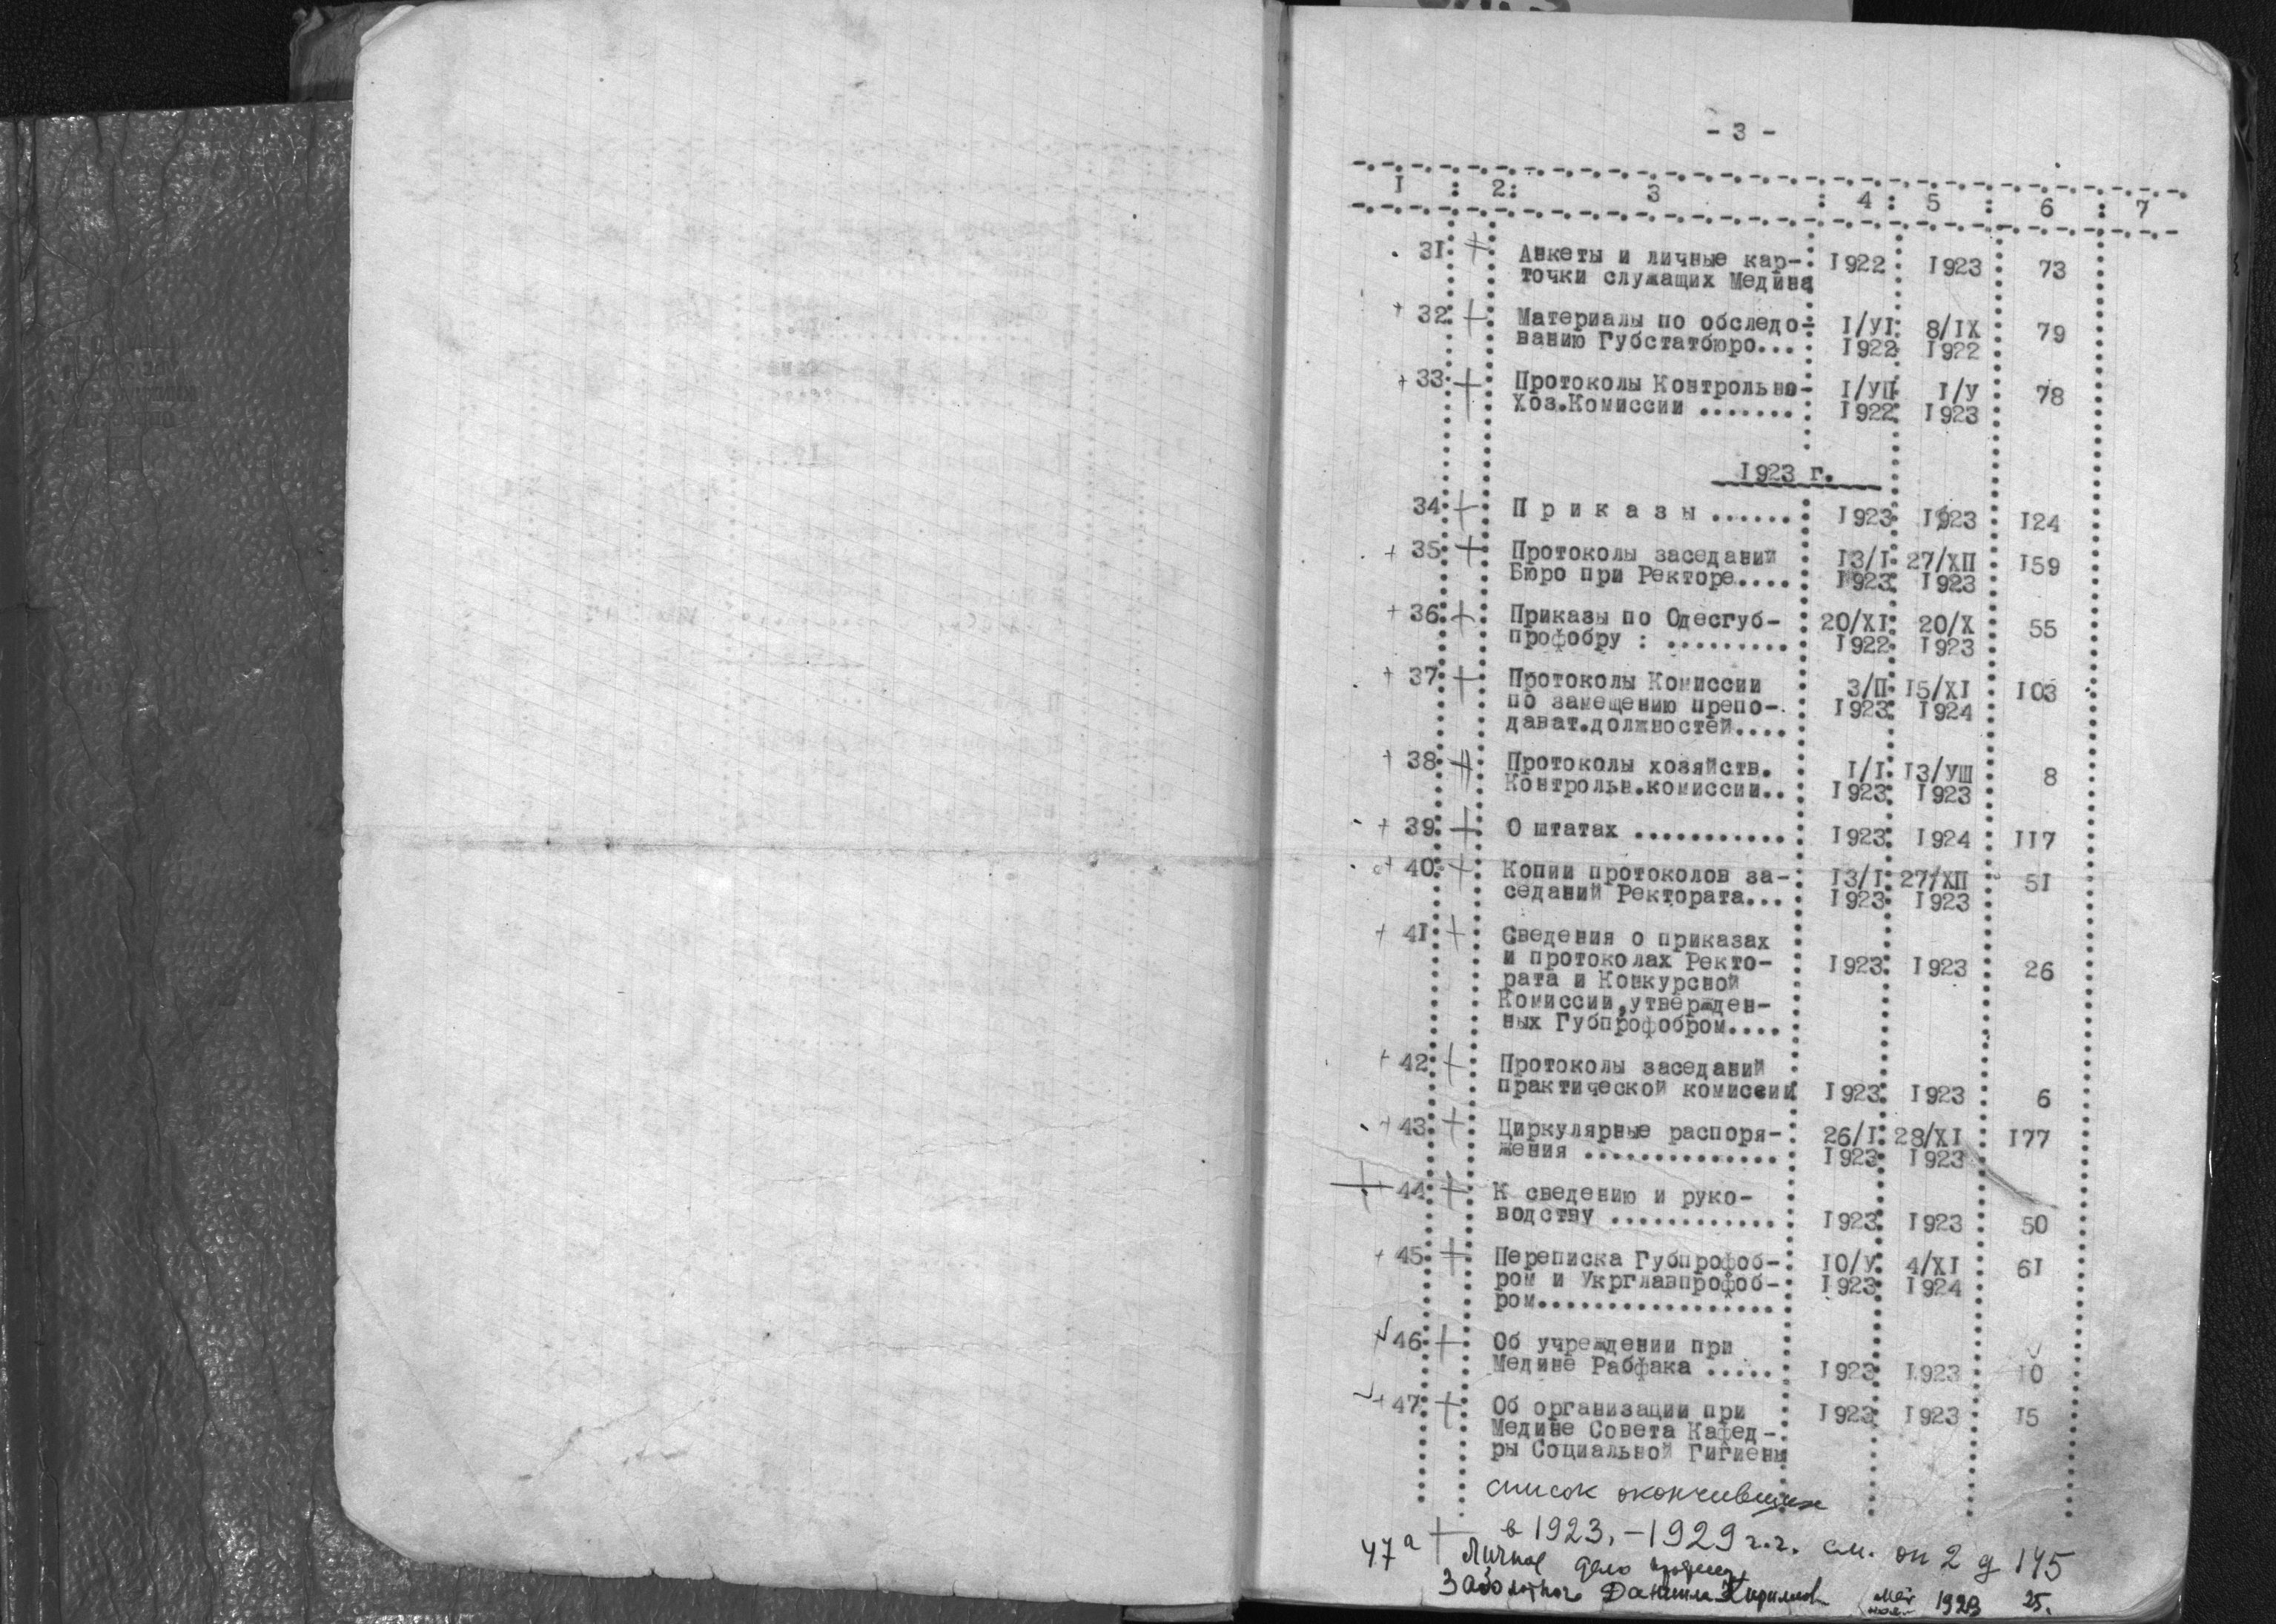 - 3 -
I : 2: 3 : 4 : 5 : 6 : 7
31 + Анкеты и личные кар- I922 I923 73
точки служащих Медина
+ 32 + Материалы по обследо- I/УI 8/IX 79
ванию Губстатбюро... I922 I922
+ 33 + Протоколы Контрольно- I/УП I/У 78
Хоз.Комиссии ....... I922 I923
I923 г.
34 + П р и к а з ы ...... I923 I923 I24
+ 35 + Протоколы заседаний I3/I 27/XII I59
Бюро при Ректоре.... I923 I923
+ 36 + Приказы по Одесгуб- 20/XI 20/X 55
профобру : ......... I922 I923
+ 37 + Протоколы Комиссии 3/П I5/XI I03
по замещению препо- I923 I924
дават.должностей....
+ 38 + Протоколы хозяйств. I/I I3/УШ 8
Контрольн.комиссии.. I923 I923
+ 39 + О штатах ........... I923 I924 II7
+ 40 + Копии протоколов за- I3/I 27/XII 5I
седаний Ректората... I923 I923
+ 4I + Сведения о приказах
и протоколах Ректо- I923 I923 26
рата и Конкурсной
Комиссии,утвержден-
ных Губпрофобром....
+ 42 + Протоколы заседаний
практической комиссии I923 I923 6
+ 43 + Циркулярные распоря- 26/I 28/XI I77
жения .............. I923 I923
+ 44 + К сведению и руко-
водству ............ I923 I923 50
+ 45 + Переписка Губпрофоб- I0/У 4/XI 6I
ром и Укрглавпрофоб- I923 I924
ром.................
√ 46 + Об учреждении при
Медине Рабфака ..... I923 I923 I0
√ + 47 + Об организации при I923 I923 I5
Медине Совета Кафед-
ры Социальной Гигиены
список окончивших
в 1923,-1929 г.г. см. оп 2 д 145
47а + Личное дело
Заболотного Данила 1923 25.